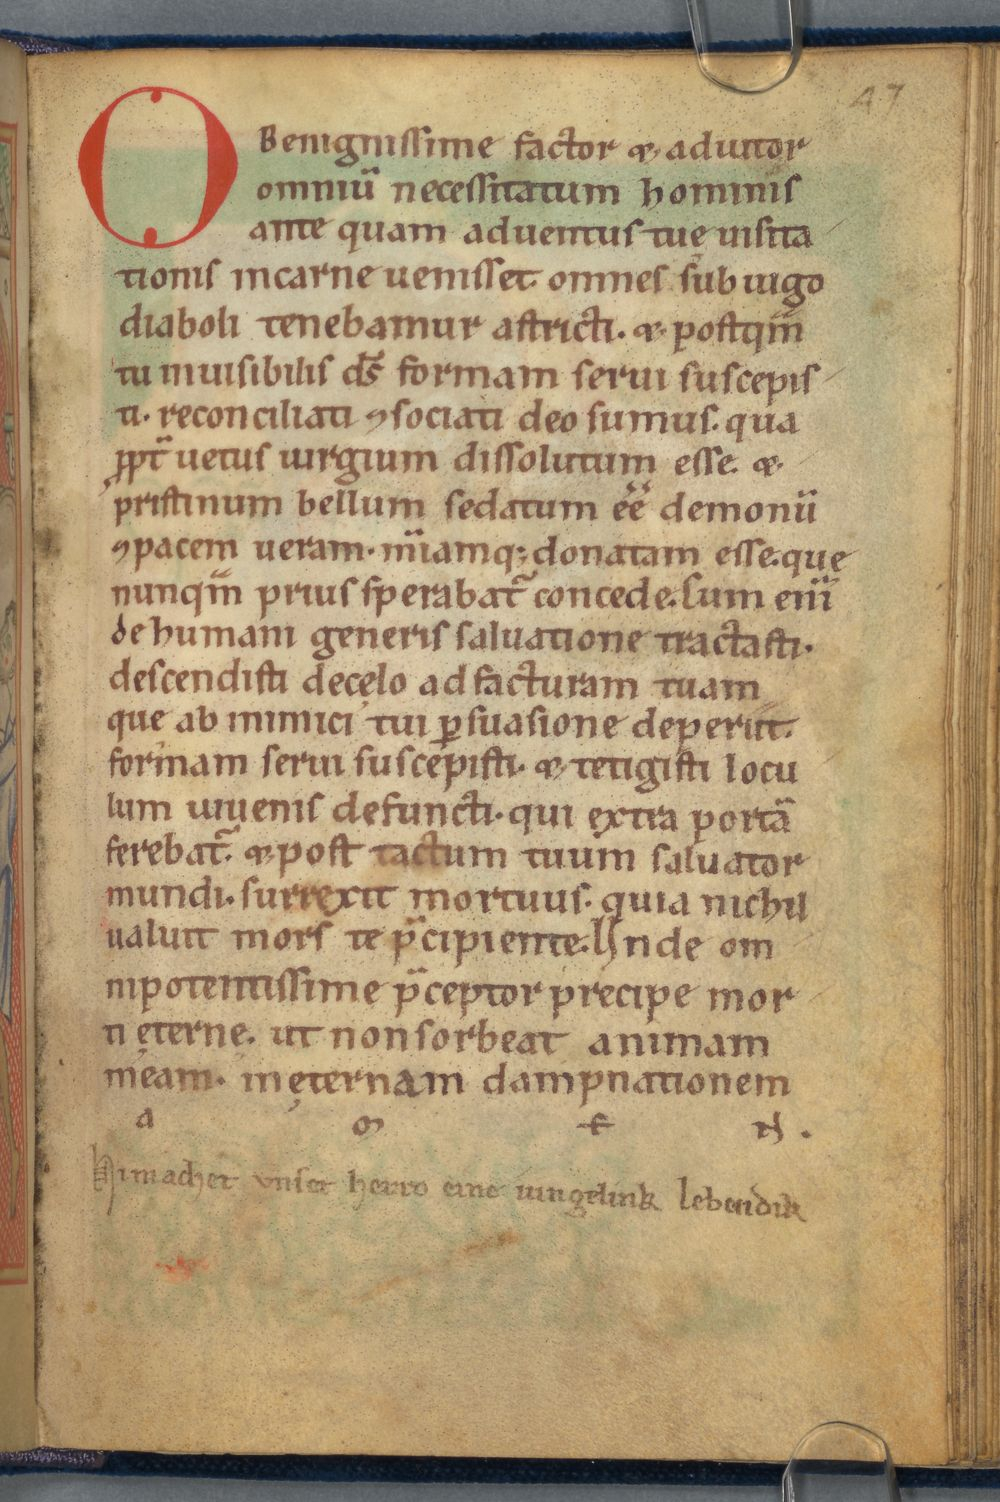 47
O Benignissime factor & adiutor
omniū necessitatum hominis
ante quam aduentus tuę uisita
tionis incarne uenisset omnes sub iugo
diaboli tenebamur astricti. & postqm̄
tu inuisibilis ds̄ formam serui suscepis
ti. reconciliati ⁊sociati deo sumus. qua
ꝓpt̄ uetus iurgium dissolutum esse. &
pristinum bellum sedatum eē demoniū
⁊pacem ueram. n̄iamq; donatam esse. que
nunqm̄ prius sperabat᷑ concede. Cum eni̅
de humani generis saluatione tractasti.
descendisti decęlo ad facturam tuam
que ab inimici tui ꝑsuasione deperiit.
formam serui suscepisti. & tetigisti locu
lum iuuenis defuncti. qui extra portā
ferebat᷑. & post tactum tuum saluator
mundi. surrexit mortuus. quia nichil
ualuit mors te p̄cipiente. Unde om
nipotentissime p̄ceptor precipe mor
ti ęterne. ut non sorbeat animam
meam. in ęternam dampnationem
a m e n .
Hi machet vnser herro eine iungelink lebendik